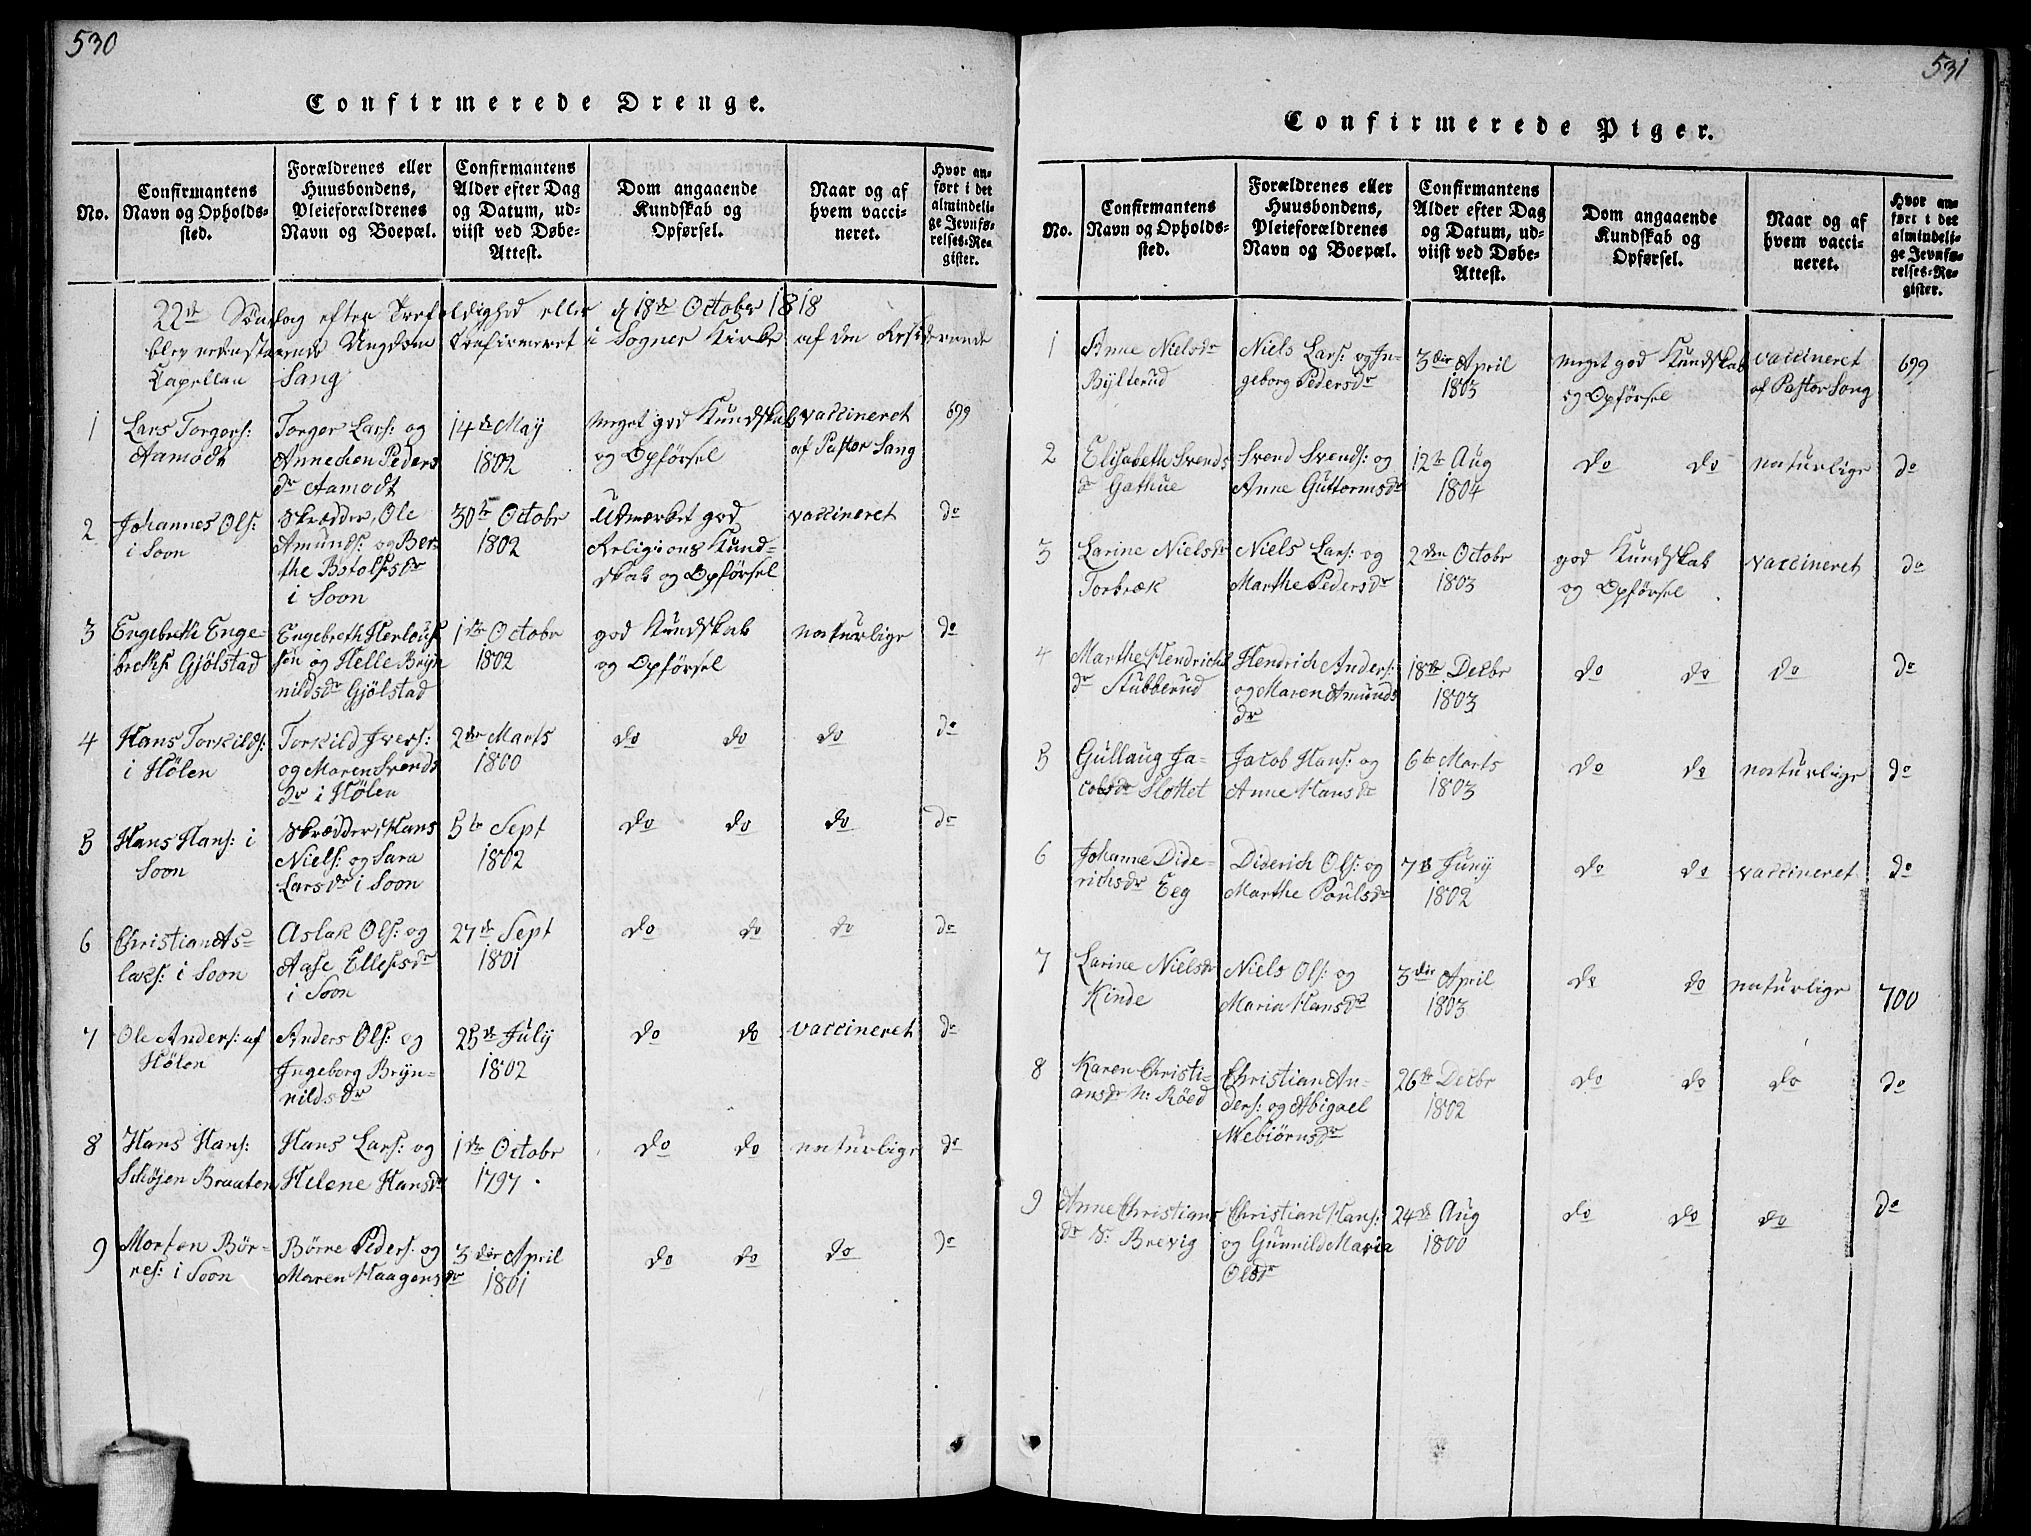 530
Confirmerede Drenge.
No.
Confirmantens
Navn og Opholds-
sted.
Forældrenes eller
Huusbondens,
Pleieforældrenes
Navn og Boepæl.
Confirmantens
Alder efter Dag
og Datum, ud-
viist ved Døbe-
Attest.
Dom angaaende
Kundskab og
Opførsel.
Naar og af
hvem vacci-
neret.
Hvor an-
ført i det
almindeli-
ge Jevnfø-
relses-Re-
gister.
22de Søndag efter Trefoldighed eller d 18de Octobr 1818
blev nedenstaaende Ungdom Confirmeret i Sogner Kirke af den Residerende
Capellan Sang
1
Lars Torgers:
Aamodt
Torger Lars: og
Annechen Peders
dr Aamodt
14de May
1802
meget god Kundskab
og Opførsel
vaccineret
af Pastor Sang
699
2
Johannes Ols:
i Soon
Skrædder, Ole
Amunds: og Ber-
the Botolfsdr
i Soon
30te Octobr
1802
Udmærket god
Religions Kund-
skab og Opførsel
vaccineret
do
3
Engebreth Enge-
breths: Gjölstad
Engebreth Herlouf
sön og Helle Bryn
nildsdr Gjölstad
1ste Octobr
1802
god Kundskab
og Opførsel
naturlige
do
4
Hans Torkilds:
i Hölen
Torkild Ivers:
og Maren Svends
dr i Hölen
2den Marts
1800
do do
do
do
5
Hans Hans: i
Soon
Skrædder, Hans
Niels: og Sara
Larsdr i Soon
5te Sept
1802
do do
do
do
6
Christian As-
laks: i Soon
Aslak Ols: og
Aase Ellefsdr
i Soon
27de Sept
1801
do do
do
do
7
Ole Anders: af
Hölen
Anders Ols: og
Ingeborg Bryn-
nildsdr
25de July
1802
do do
vaccineret
do
8
Hans Hans:
Schöjen Braaten
Hans Lars: og
Helene Hansdr
1ste Octobr
1797.
do do
naturlige
do
9
Morten Bör-
res: i Soon
Börre Peders: og
Maren Haagensdr
3die April
1801
do do
do
do
531
Confirmerede Piger.
No.
Confirmantens
Navn og Opholds-
sted.
Forældrenes eller
Huusbondens,
Pleieforældrenes
Navn og Boepæl.
Confirmantens
Alder efter Dag
og Datum, ud-
viist ved Døbe-
Attest.
Dom angaaende
Kundskab og
Opførsel.
Naar og af
hvem vacci-
neret.
Hvor an-
ført i det
almindeli-
ge Jevnfø-
relses-Re-
gister.
1
Anne Nielsdr
Bylterud
Niels Lars: og In-
geborg Pedersdr
3die April
1803
meget god Kundskab
og Opførsel
vaccineret
af Pastor Sang
699
2
Elisabeth Svends
dr Gathue
Svend Svends: og
Anne Guttormsdr
12te Aug
1804
do do
naturlige
do
3
Larine Nielsdr
Torbræk
Niels Lars: og
Marthe Pedersdr
2den Octobr
1803
god Kundskab
og Opførsel
vaccineret
do
4
Marthe Hendrichs
dr Stubberud
Hendrich Anders:
og Maren Amunds
dr
18de Decbr
1803
do do
do
do
5
Gullaug Ja-
cobsdr Slottet
Jacob Hans: og
Anne Hansdr
6te Marts
1803
do do
naturlige
do
6
Johanne Dide-
richsdr Eeg
Diderich Ols: og
Marthe Poulsdr
7de Juny
1802
do do
vaccineret
do
7
Larine Nielsdr
Kinde
Niels Ols: og
Maria Hansdr
3die April
1803
do do
naturlige
700
8
Karen Christi-
ansdr N: Röed
Christian An-
ders: og Abigael
Webiörnsdr
26de Decbr
1802
do do
do
do
9
Anne Christians
dr S: Brevig
Christian Hans:
og Gunnild Maria
Olsdr
24de Aug
1800
do do
do
do